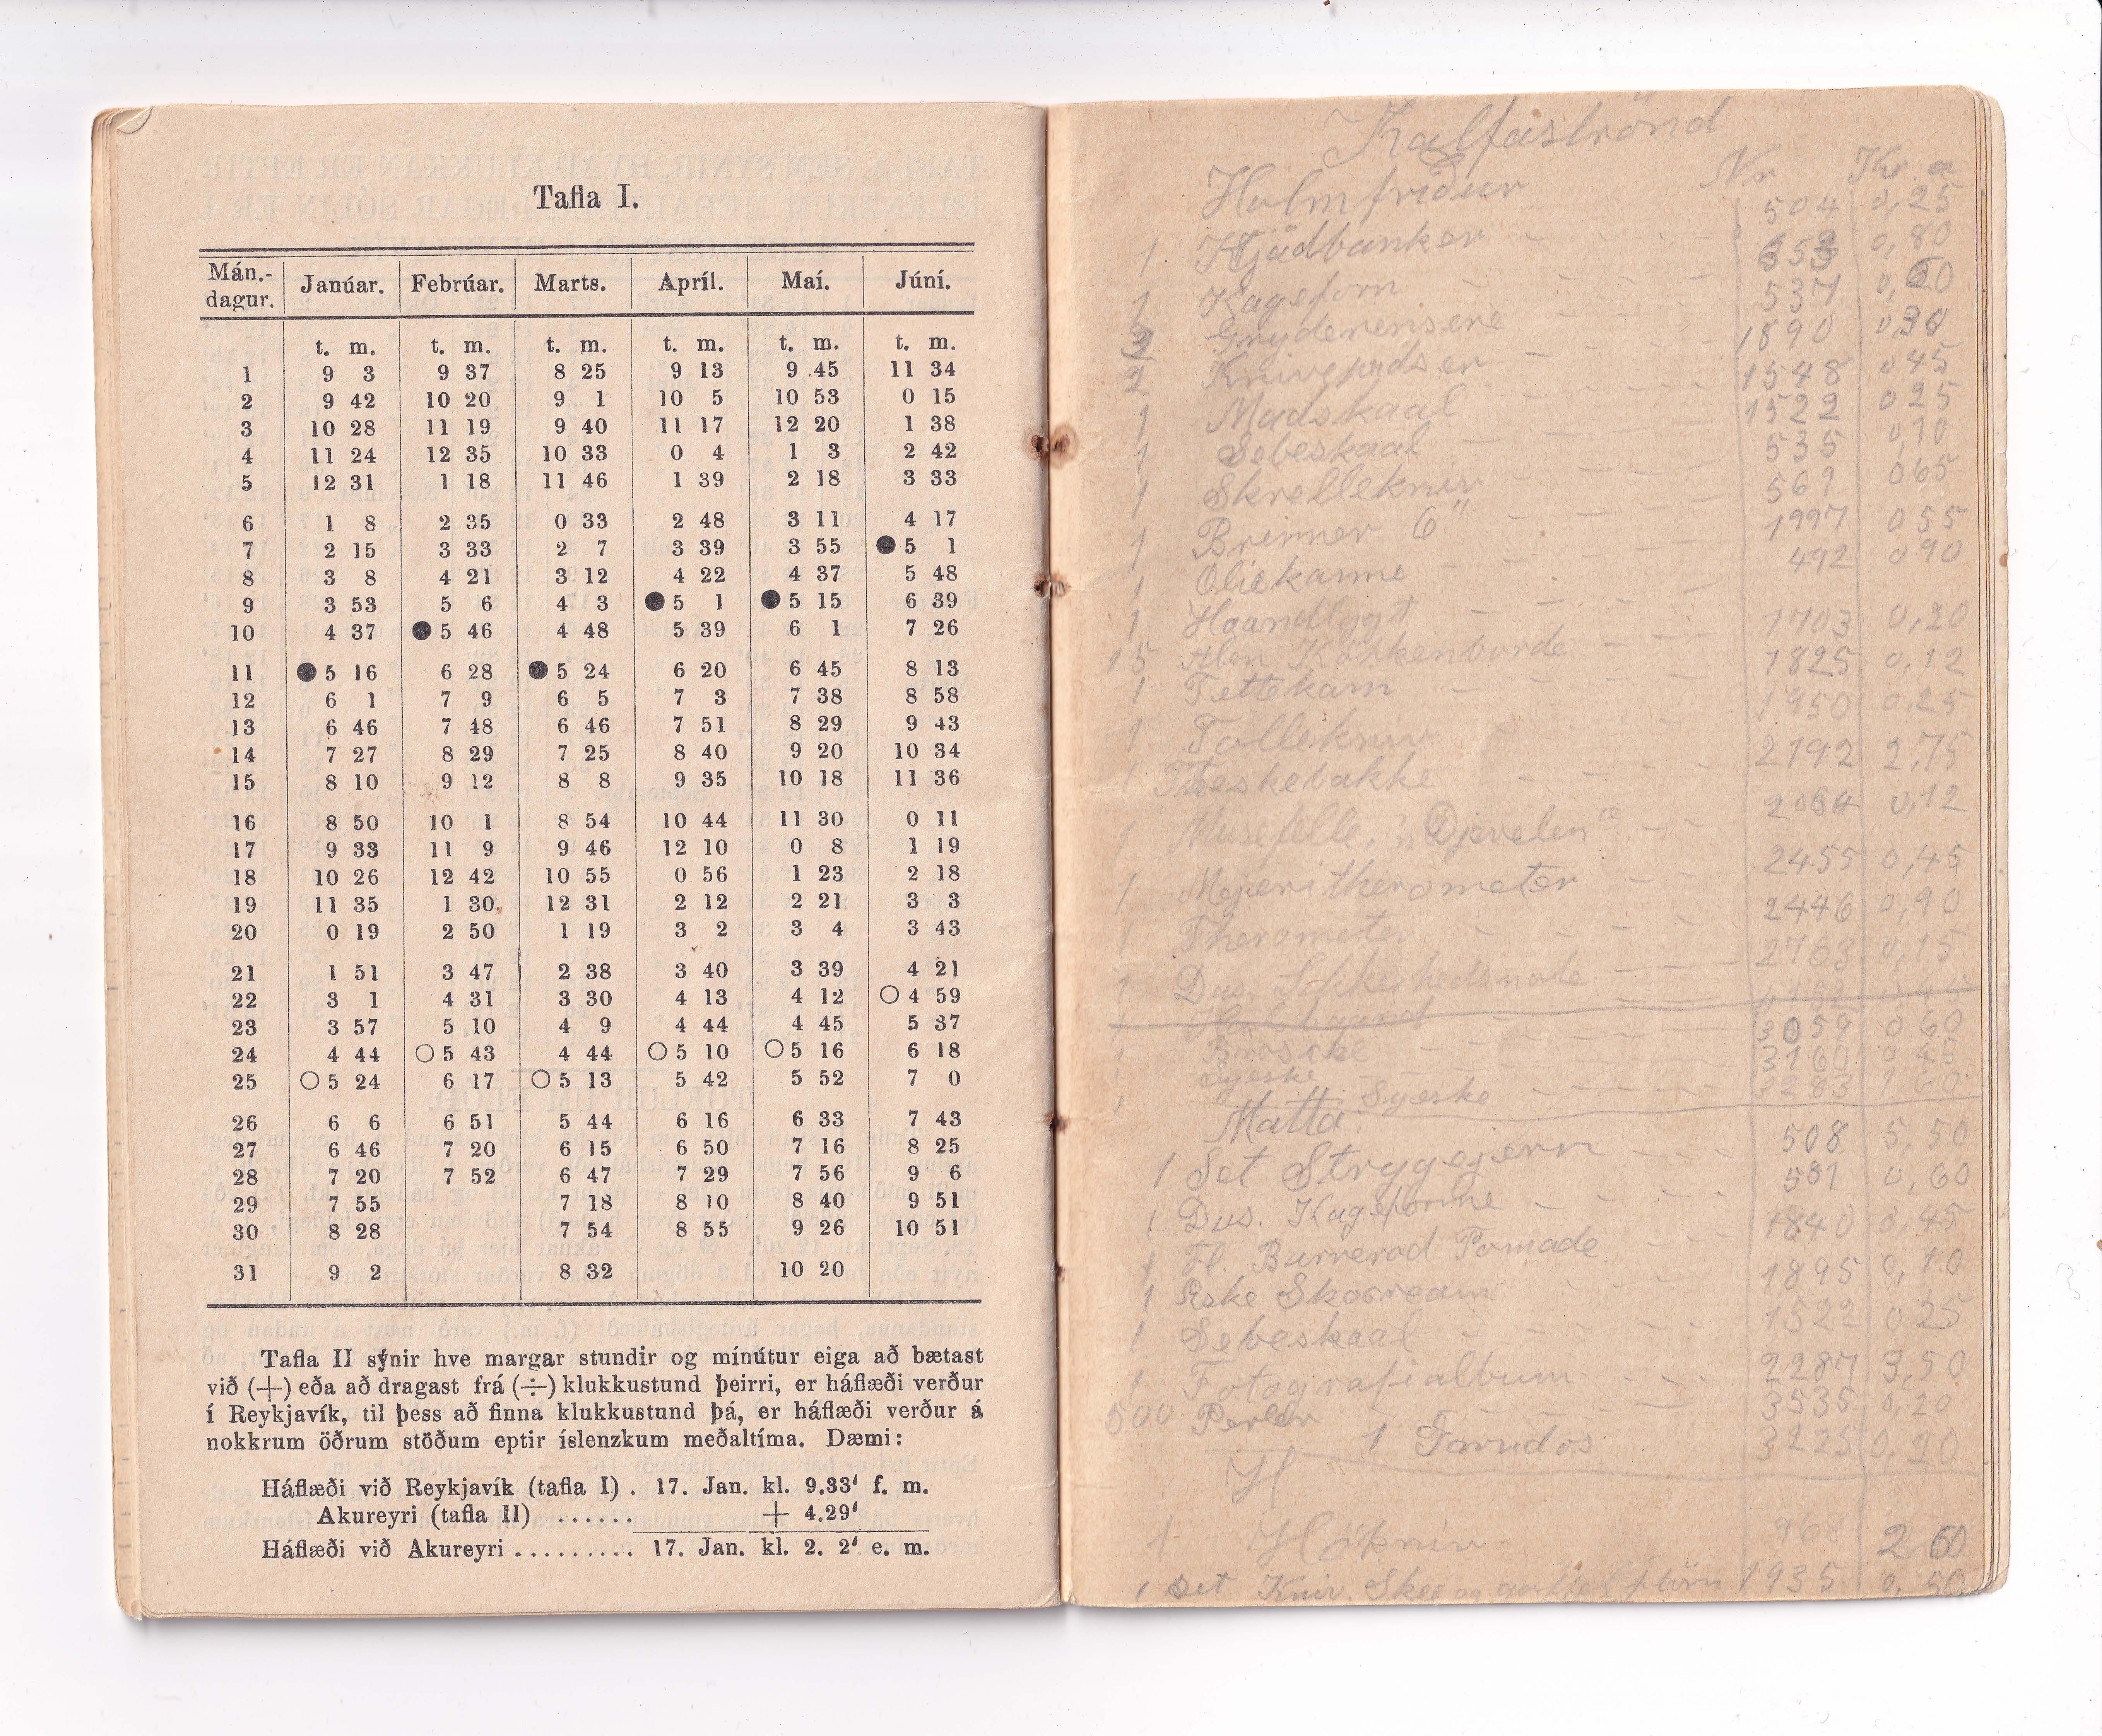 Tafla I.
Mán.- dagur. Janúar. Febrúar. Marts. Apríl. Maí. Júní.
t. m. t. m. t. m. t. m. t. m. t. m.
1 9 3 9 37 8 25 9 13 9 45 11 34
2 9 42 10 20 9 1 10 5 10 53 0 15
3 10 28 11 19 9 40 11 17 12 20 1 38
4 11 24 12 35 10 33 0 4 1 3 2 42
5 12 31 1 18 11 46 1 39 2 18 3 33
6 1 8 2 35 0 33 2 48 3 11 4 17
7 2 15 3 33 2 7 3 39 3 55 ●5 1
8 3 8 4 21 3 12 4 22 4 37 5 48
9 3 53 5 6 4 3 ●5 1 ●5 15 6 39
10 4 37 ●5 46 4 48 5 39 6 1 7 26
11 ●5 16 6 28 ●5 24 6 20 6 45 8 13
12 6 1 7 9 6 5 7 3 7 38 8 58
13 6 46 7 48 6 46 7 51 8 29 9 43
14 7 27 8 29 7 25 8 40 9 20 10 34
15 8 10 9 12 8 8 9 35 10 18 11 36
16 8 50 10 1 8 54 10 44 11 30 0 11
17 9 33 11 9 9 46 12 10 0 8 1 19
18 10 26 12 42 10 55 0 56 1 23 2 18
19 11 35 1 30 12 31 2 12 2 21 3 3
20 0 19 2 50 1 19 3 2 3 4 3 43
21 1 51 3 47 2 38 3 40 3 39 4 21
22 3 1 4 31 3 30 4 13 4 12 ○4 59
23 3 57 5 10 4 9 4 44 4 45 5 37
24 4 44 ○5 43 4 44 ○5 10 ○5 16 6 18
25 ○5 24 6 17 ○5 13 5 42 5 52 7 0
26 6 6 6 51 5 44 6 16 6 33 7 43
27 6 46 7 20 6 15 6 50 7 16 8 25
28 7 20 7 52 6 47 7 29 7 56 9 6
29 7 55 7 18 8 10 8 40 9 51
30 8 28 7 54 8 55 9 26 10 51
31 9 2 8 32 10 20
Tafla II sýnir hve margar stundir og mínútur eiga að bætast
við (+) eða að dragast frá (÷) klukkustund þeirri, er háflæði verður
í Reykjavík, til þess að finna klukkustund þá, er háflæði verður á
nokkrum öðrum stöðum eptir íslenzkum meðaltíma. Dæmi:
Háflæði við Reykjavík (tafla I) . 17. Jan. kl. 9.33' f. m.
Akureyri (tafla II) ....... + 4.29'
Háflæði við Akureyri ......... 17. Jan. kl. 2. 2' e. m.
Kalfaströnd
Holmfridur Nr Kr a
1 Kjödbanker 504 0,25
1 Kageform 0,80
Gryderensere 537
2 1890
1 Madskaal 1548 0 45
1 Sebeskaal 1522 0 25
1 Skrellekniv 535 0,10
1 Brenner 6" 569 0 65
1 Oliekanne 1997 0 55
1 Haandlygt 492 0 90
15 Alen Kökkenborde 1703 0,20
1 Tettekam 1825 0,12
1 Follekniv 1950 0,25
1 Theskebakke 2192 2,75
1 Musefelle, "Djevelen" 0,12
1 Mejeritherometer 2455 0,45
1 Therometer 2446 0,90
1 Dus. Sikkerhedsnole 2763 0,15
Broscke 3059 0 60
Syeske 3160
1 Syeske 3283 1 60
Matta
1 Set Strygejern 508 5,50
1 Dus. Kageforme 581 0,60
1 Fl Burrerod Pomade 1840 0,45
1 Eske Skocream 1895 0,10
1 Sebeskaal 1522 0,25
1 Fotografialbum 2287 3,50
500 Perler 3535 0,20
1 3225 0,20
H
1 968 2 60
1 Set Kniv, Ske og gaffel 1935 0,50